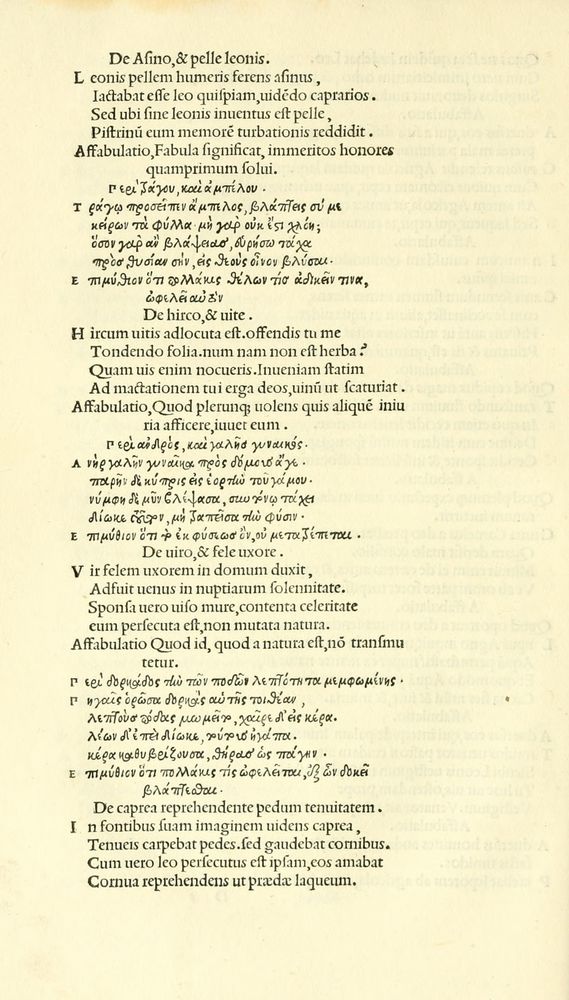 De Asino,& pelle leonis.
L eonis pellem humeris ferens asinus,
Iactabat esse leo quispiam,uidēdo caprarios.
Sed ubi sine leonis inuentus est pelle,
Pistrinū eum memorē turbationis reddidit.
Affabulatio,Fabula significat, immeritos honores
quamprimum solui.
Περὶ τράγου, καὶ ἀμπέλου.
Τ ράγῳ προσεῖπεν ἄμπελος, βλάπτεις σύ με
κείρων τὰ φύλλα· μὴ γὰρ οὐκ ἔστι χλόη;
ὅσον γὰρ ἂν βλάψειας, εὑρήσω τάχα
πρὸς θυσίαν σὴν, εἰς θεοὺς οἶνον βλύσαι.
Ε πιμύθιον ὅτι πολλάκις θέλων τὶς ἀδικεῖν τινα,
ὠφελεῖ αὐτόν
De hirco,& uite.
H ircum uitis adlocuta est.offendis tu me
Tondendo folia.num nam non est herba?
Quam uis enim nocueris.Inueniam statim
Ad mactationem tui erga deos,uinū ut scaturiat.
Affabulatio,Quod plerunq; uolens quis aliquē iniu
ria afficere,iuuet eum.
Περὶ ἀνδρὸς, καὶ γαλῆς γυναικός.
Α νὴρ γαλῆν γυναῖκα πρὸς δόμους ἄγε.
παρῆν δὲ κύπρις εἰς ἑορτὴν τοῦ γάμου.
νύμφη δὲ μῦν βλέψασα, σὺν τόνῳ τάχει
δίωκε τοῦτον, μὴ τραπεῖσα τὴν φύσιν.
Ε πιμύθιον ὅτι τὸ ἐκ φύσεως ὂν,οὐ μετατρέπεται.
De uiro,& fele uxore.
V ir felem uxorem in domum duxit,
Adfuit uenus in nuptiarum solennitate.
Sponsa uero uiso mure,contenta celeritate
eum persecuta est,non mutata natura.
Affabulatio Quod id, quod a natura est,nō transmu
tetur.
Π ερὶ δορκάδος τὴν τῶν ποδῶν λεπτότητα μεμφομένης.
Π ηγαῖς ὁρῶσα δορκὰς αὐτῆς τοι θέαν,
λεπτοὺς πόδας μωμεῖτο, χαῖρε δ' εἰς κέρα.
λέων δ' ἐπεὶ δίωκε, τούτους ἠγάπα.
κέρα καθυβρίζουσα, θήρας ὡς πάγην.
Ε πιμύθιον ὅτι πολλάκις τὶς ὠφελεῖται, ἐξ ὧν δοκεῖ
βλάπτεσθαι.
De caprea reprehendente pedum tenuitatem.
I n fontibus suam imaginem uidens caprea,
Tenueis carpebat pedes.sed gaudebat cornibus.
Cum uero leo persecutus est ipsam,eos amabat
Cornua reprehendens ut prædæ laqueum.